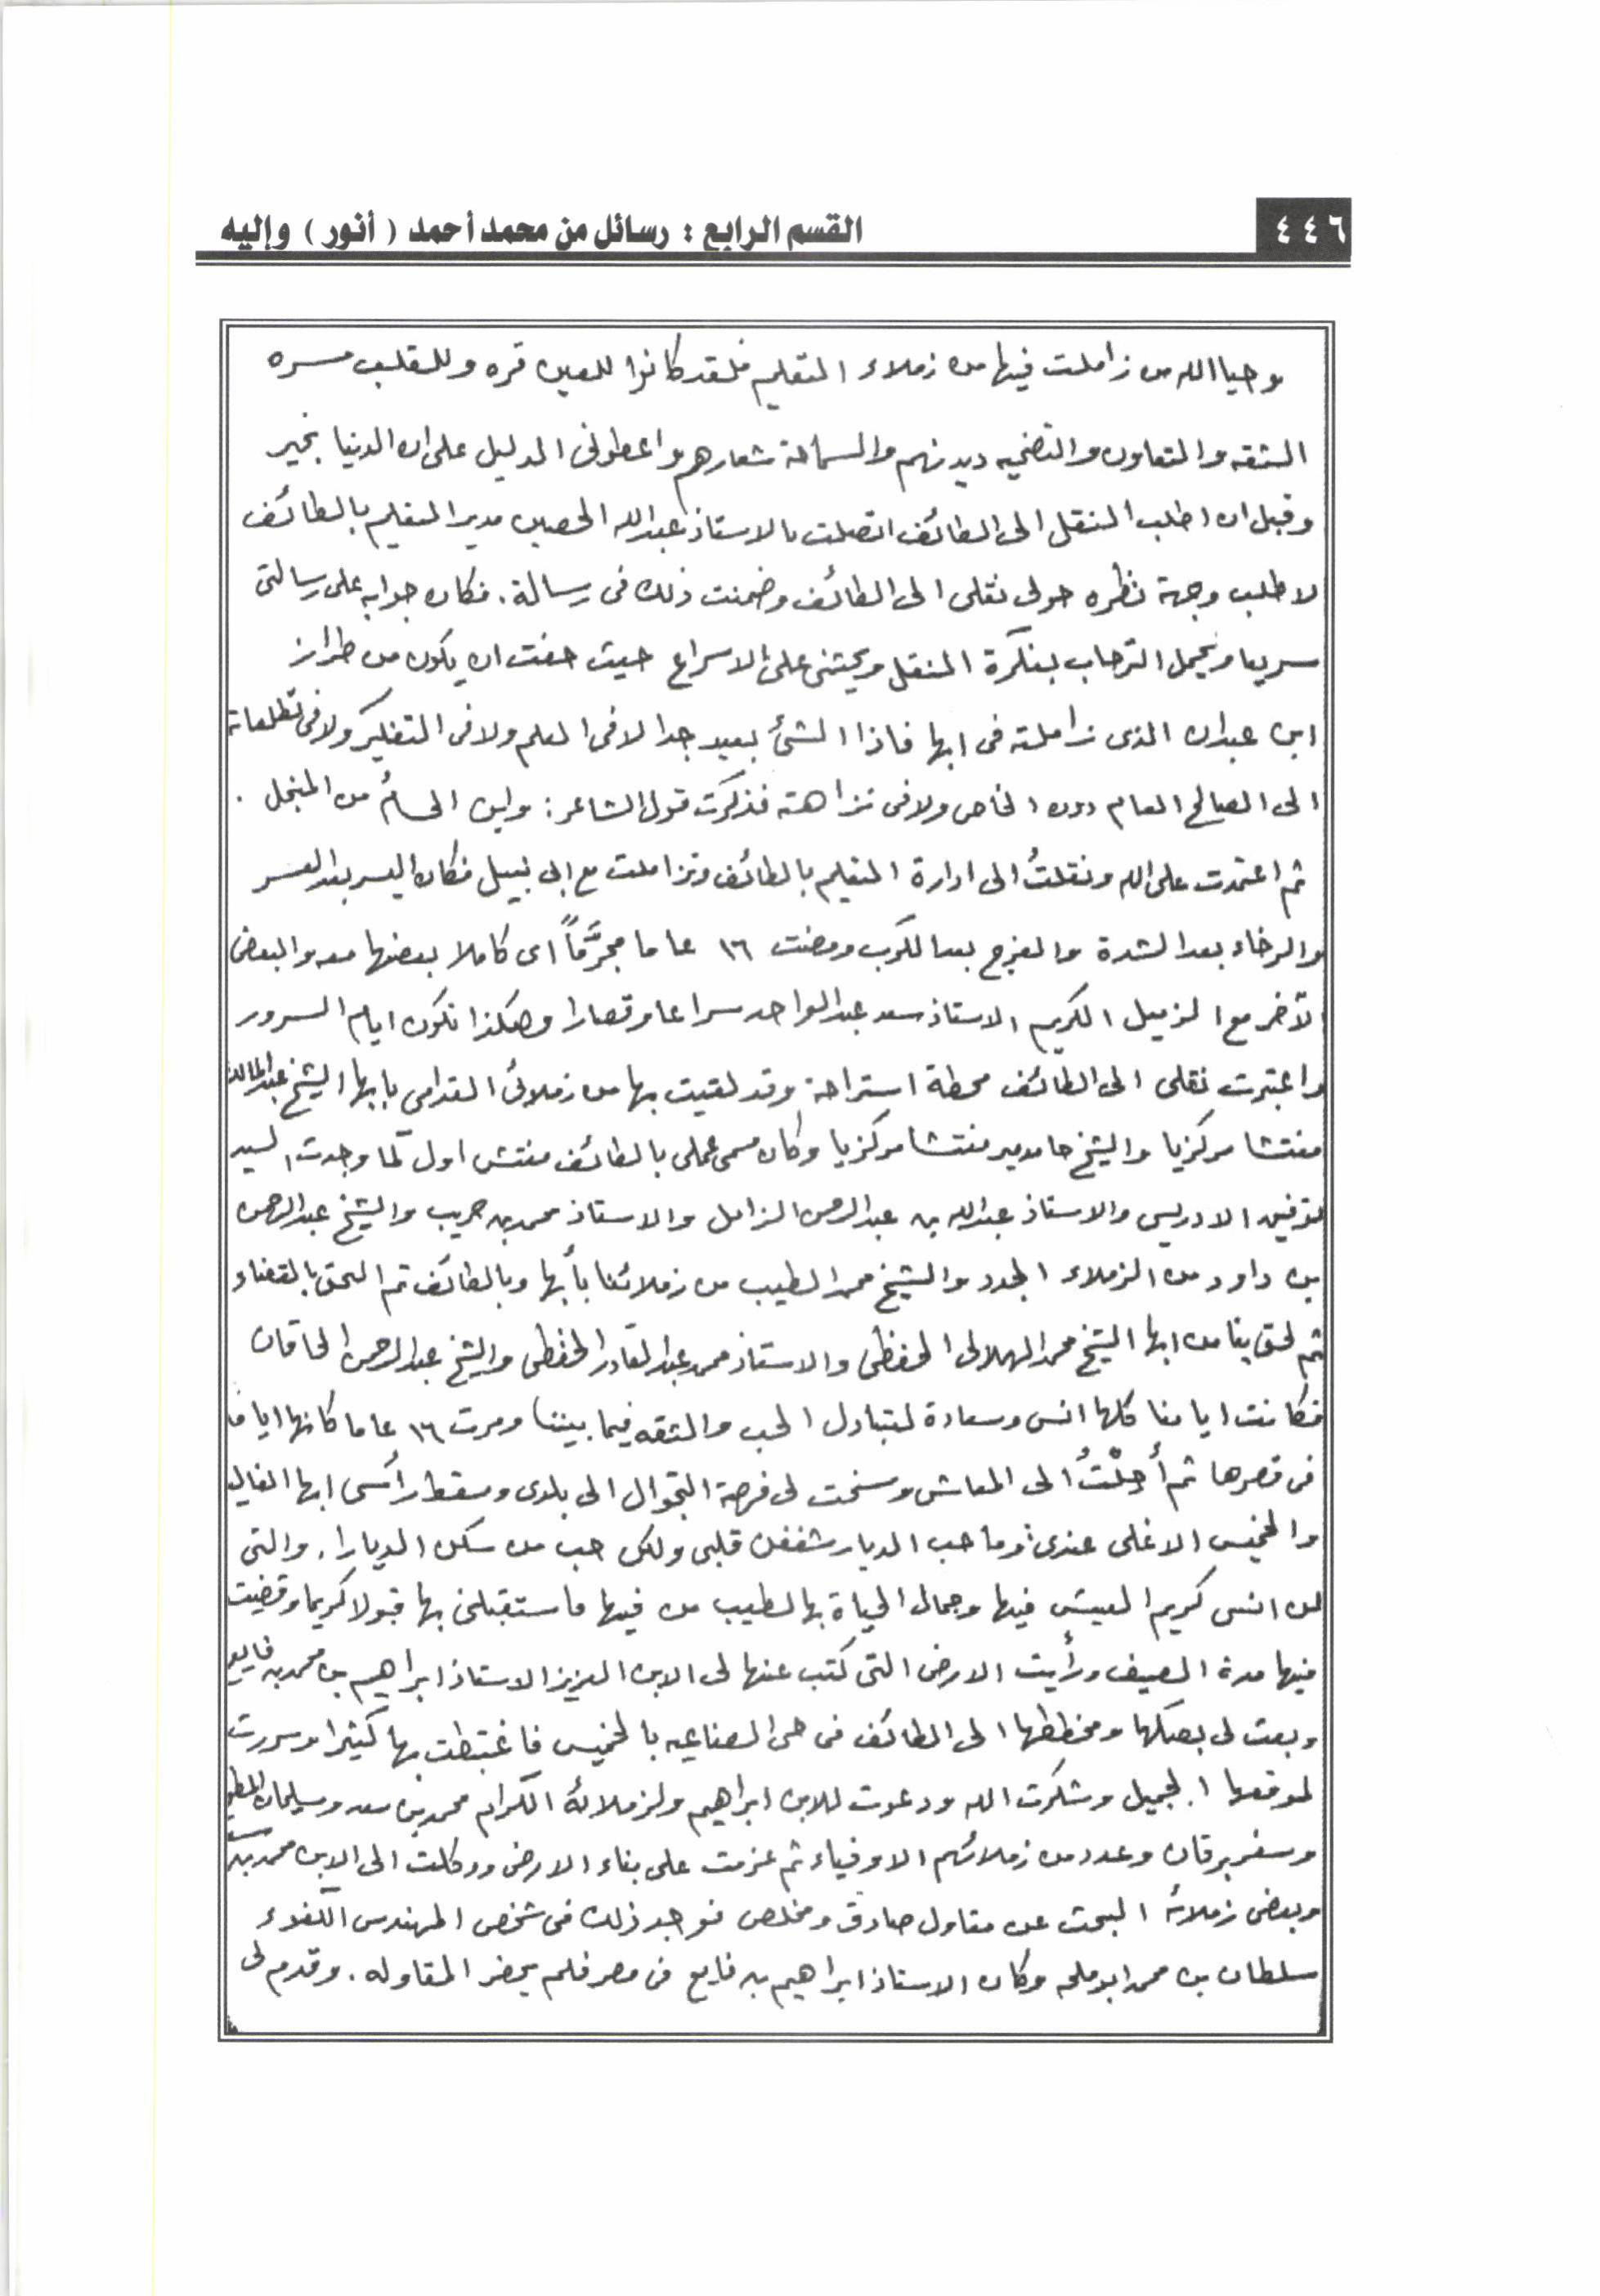 ٤٤٦
القسم الرابع : رسائل من محمد أحمد ( أنور ) وإليه
وحيا الله من زاملت فيها من زملاء التعليم فلقد كانوا للعين قره وللقلب مسره
الثقه والتعاون والتضحيه ديدنهم والسماحة شعارهم واعطونى الدليل على ان الدنيا بخير
وقبل ان اطلب النقل الى الطائف اتصلت بالاستاذ عبدالله الحصين مدير التعليم بالطائف
لاطلب وجهة نظره حولى نقلى الى الطائف وضمنت ذلك فى رسالة . فكان جوابه على رسالتى
سريعا ويحمل الترحاب بفكرة النقل ويحثنى على الاسراع حيث خفت ان يكون من طراز
ابن عبدان الذى زاملته فى ابها فاذا الشئ بعيد جدا لا فى العلم ولا فى التفكير ولا فى تطلعاته
الى الصالح العام دون الخاص ولا فى نزاهته فذكرت قول الشاعر : واين الحسام من المنجل .
ثم اعتمدت على الله ونقلتُ الى ادارة التعليم بالطائف وتزاملت مع ابى نبيل فكان اليسر بعد العسر
والرخاء بعد الشدة والفرج بعد الكرب ومضت ١٦ عاما مجرَّمًا اى كاملا بعضها معه والبعض
الآخر مع الزميل الكريم الاستاذ سعد عبدالواحد سراعا وقصارا وهكذا تكون ايام السرور
واعتبرت نقلى الى الطائف محطة استراحة وقد لقيت بها من زملائى القدامى بابها الشيخ عبدالمالك
مفتشا مركزيا والشيخ حامد مفتشا مركزيا وكان مسمى عملى بالطائف مفتش اول كما وجدت السيد
توفيق الادريسى والاستاذ عبدالله بن عبدالرحمن الزامل والاستاذ محمد بن حريب والشيخ عبدالرحمن
بن داود من الزملاء الجدد والشيخ محمد الطيب من زملائنا بأبها وبالطائف ثم التحق بالقضاء
ثم لحق بنا من ابها الشيخ محمد الهلالى الحفظى والاستاذ محمد عبدالقادر الحفظى والشيخ عبدالرحمن الحاقان
فكانت ايامنا كلها انس وسعادة لتبادل الحب والثقه فيما بيننا ومرت ١٦ عاما كانها اياما
فى قصرها ثم أُحِلْتُ الى المعاش وسنحت لى فرصة التجوال الى بلدى ومسقط رأسى ابها الغاليه
والخميس الاغلى عندى : وما حب الديار شغفن قلبى ولكن حب من سكن الديارا . والتى
لن انسى كريم العيش فيها وجمال الحياة بها لطيب من فيها فاستقبلنى بها قبولا كريما وقضيت
فيها مدة الصيف ورأيت الارض التى كتب عنها لى الابن العزيز الاستاذ ابراهيم بن محمد بن فايع
وبعث لى بصكها ومخططها الى الطائف فى حى الصناعيه بالخميس فاغتبطت بها كثيرا وسررت
لموقعها الجميل وشكرت الله ودعوت للابن ابراهيم ولزملائه الكرام محمد بن سعد وسليمان
وسفر برقان وعدد من زملائهم الاوفياء ثم عزمت على بناء الارض ووكلت الى الابن محمد بن
وبعض زملائه البحث عن مقاول صادق ومخلص فوجد ذلك فى شخص المهندس الكفوء
سلطان بن محمد ابوملحه وكان الاستاذ ابراهيم بن فايع فى مصر فلم يحضر المقاوله . وقدم لى